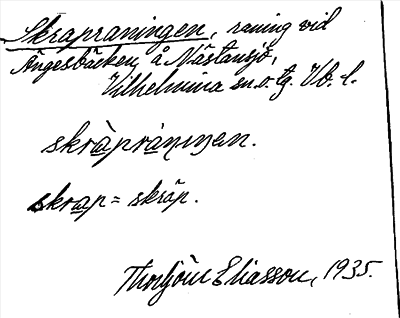 Skrapraningen, raning vid
Ängesbäcken å Nästansjö,
Vilhelmina sn. o. tg. Vb. l.
skràpràṇıŋen.
skrap = skräp.
Thorbjörn Eliasson, 1935.